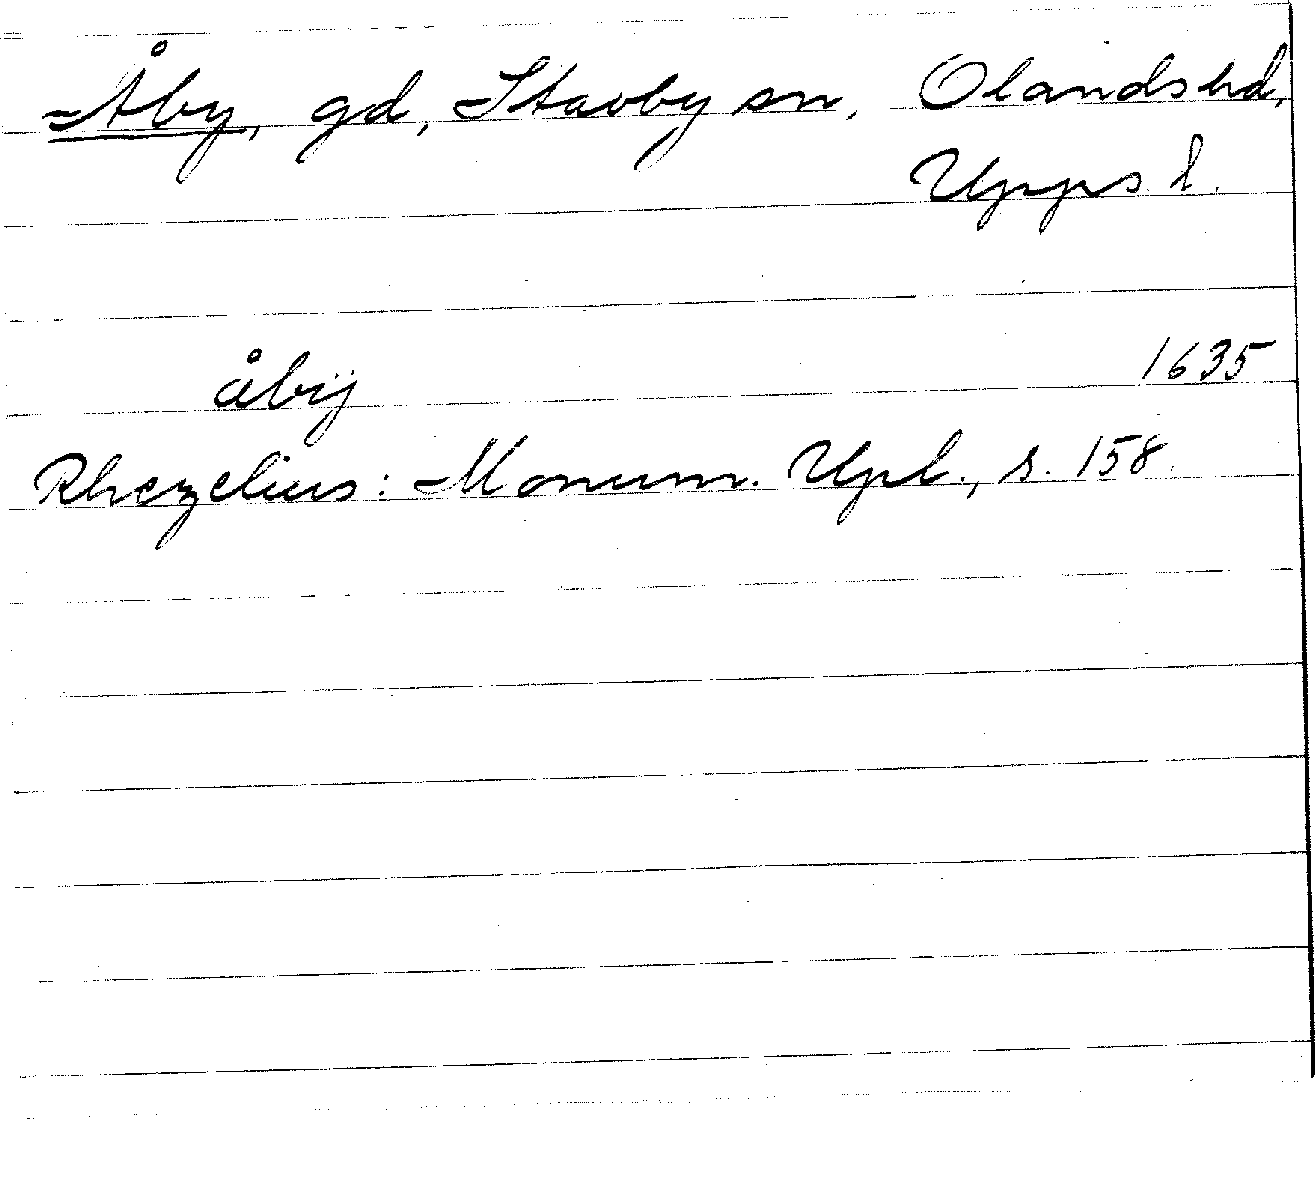 Åby, gd, Stavby sn, Olands hd,
Upps l.
åbÿ 1635
Rhezelius: Monum. Upl., s. 158.